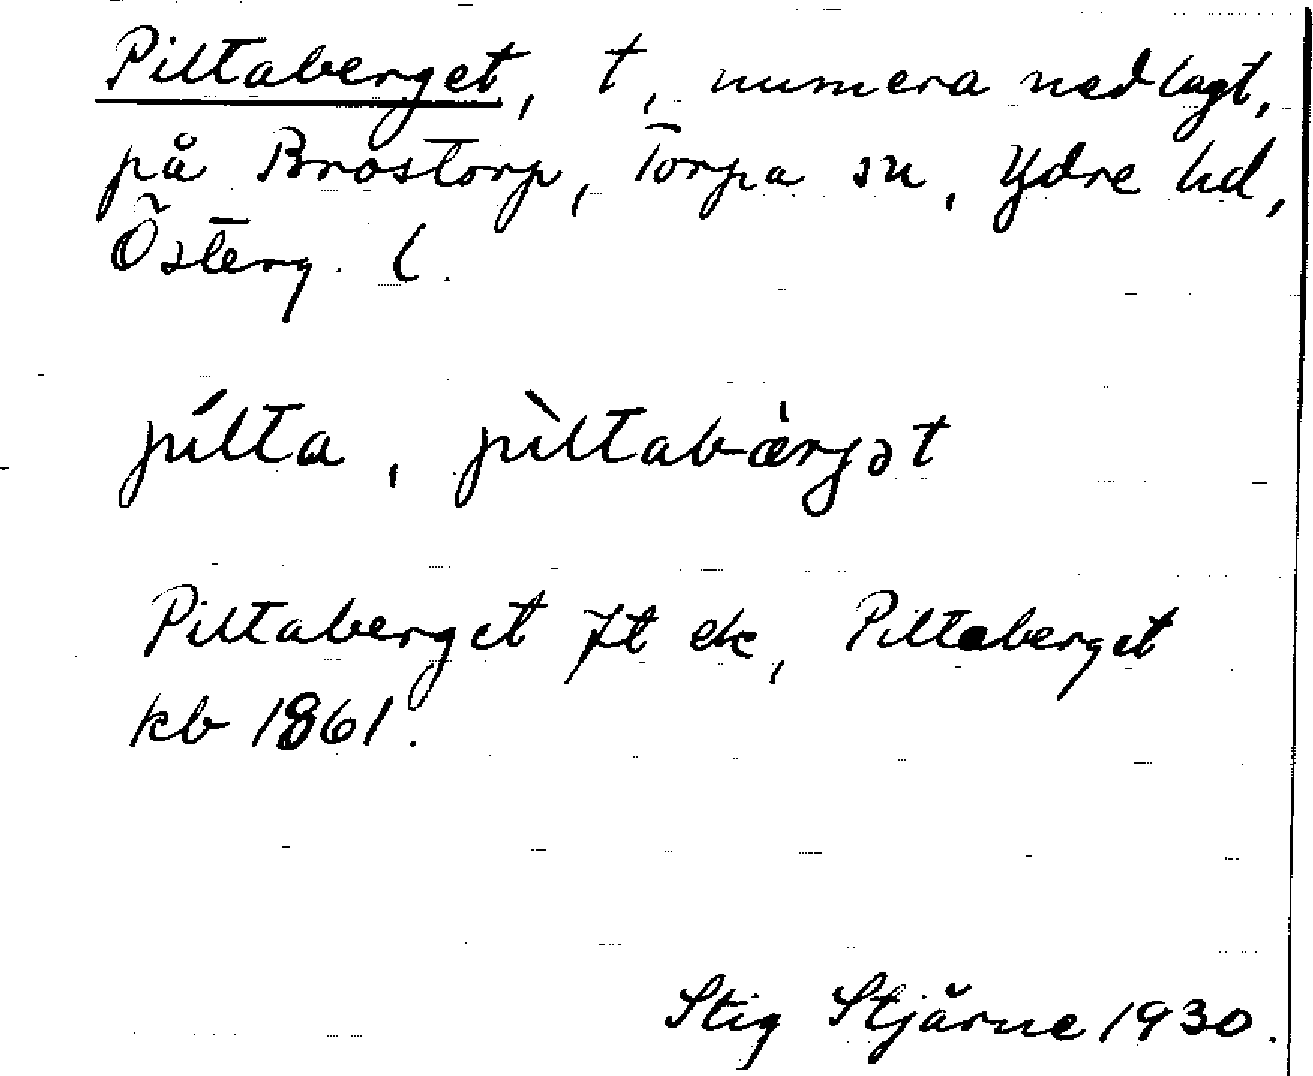 Piltaberget, t, numera nedlagt,
på Brostorp, Torpa sn, Ydre hd,
Österg. l.
pílta, pìltabærjət
Piltaberget Jt ek, Piltaberget
kb 1861.
Stig Stjärne 1930.